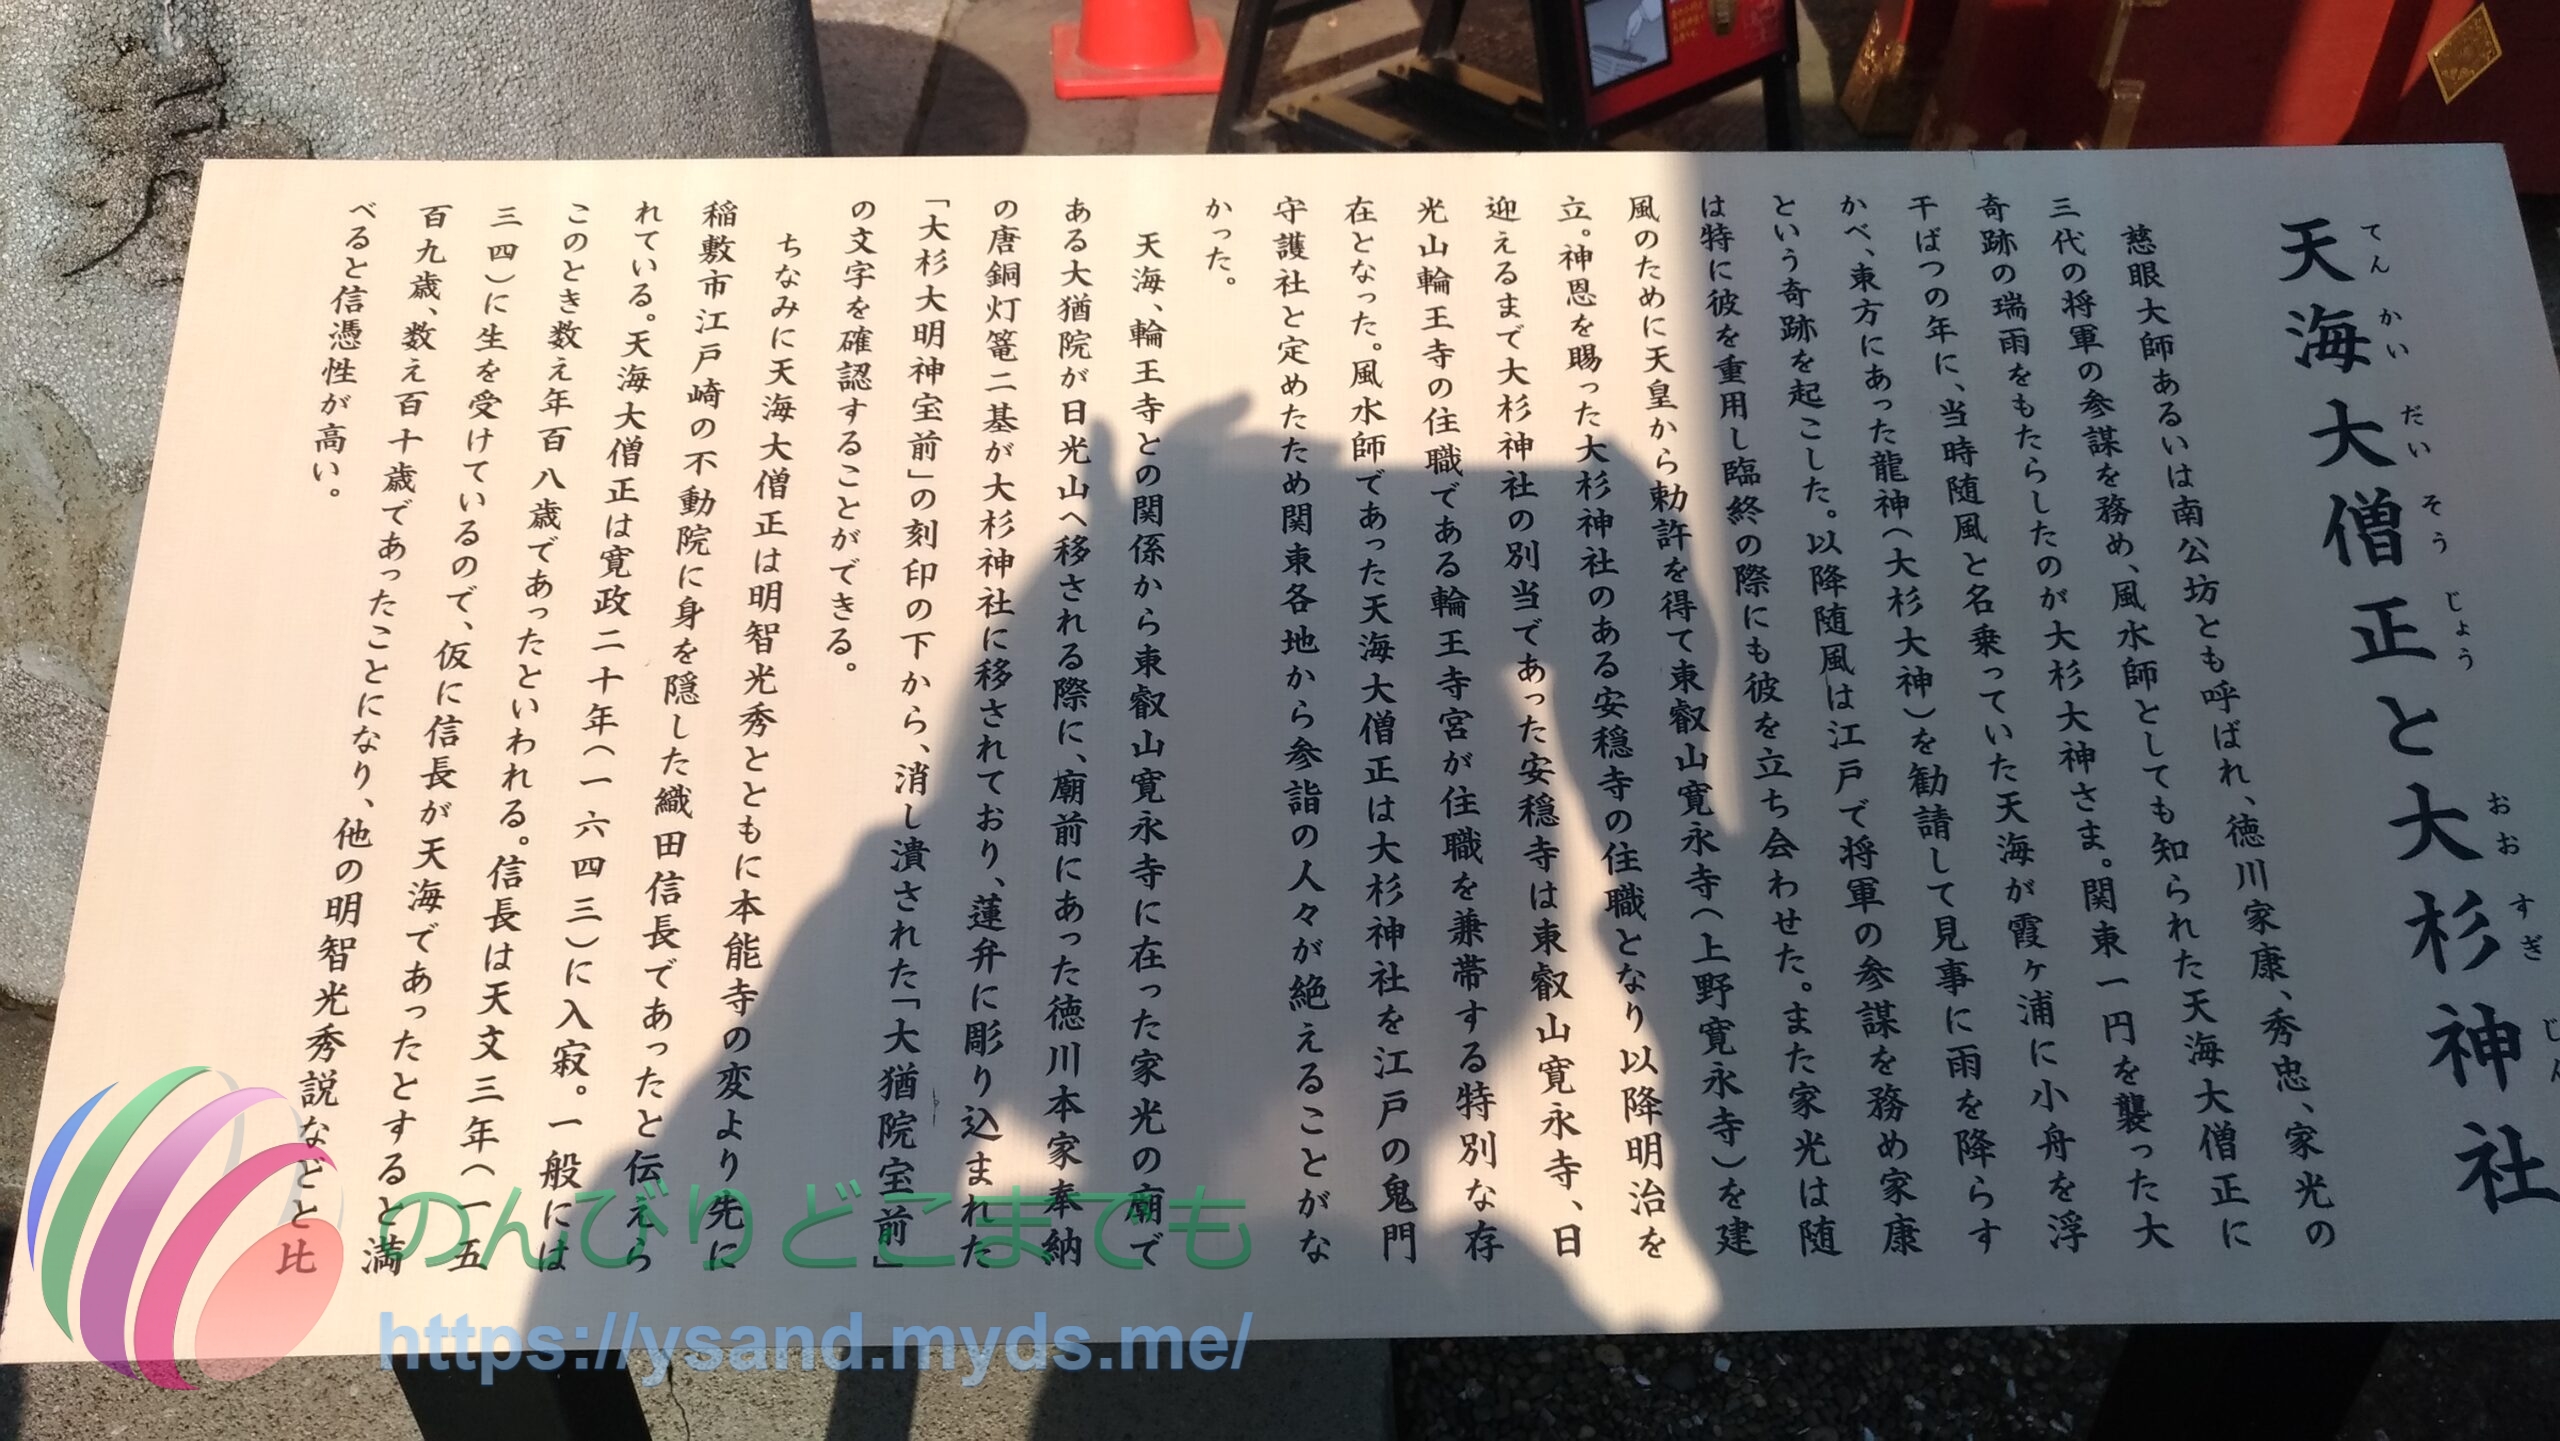 天海大僧正と大杉神社
てんかいだいそうじょう
おおすぎじん
慈眼大師あるいは南公坊とも呼ばれ、徳川家康、秀忠、家光の
三代の将軍の参謀を務め、風水師としても知られた天海大僧正に
奇跡の瑞雨をもたらしたのが大杉大神さま。関東一円を襲った大
干ばつの年に、当時随風と名乗っていた天海が霞ヶ浦に小舟を浮
かべ、東方にあった龍神(大杉大神)を勧請して見事に雨を降らす
という奇跡を起こした。以降随風は江戸で将軍の参謀を務め家康
は特に彼を重用し臨終の際にも彼を立ち会わせた。また家光は随
風のために天皇から勅許を得て東叡山寛永寺(上野寛永寺)を建
立。神恩を賜った大杉神社のある安穏寺の住職となり以降明治を
迎えるまで大杉神社の別当であった安穏寺は東叡山寛永寺、日
光山輪王寺の住職である輪王寺宮が住職を兼帯する特別な存
在となった。風水師であった天海大僧正は大杉神社を江戸の鬼門
守護社と定めたため関東各地から参詣の人々が絶えることがな
かった。
天海、輪王寺との関係から東叡山寛永寺に在った家光の廟で
ある大猶院が日光山へ移される際に、廟前にあった徳川本家奉納
の唐銅灯篭二基が大杉神社に移されており、蓮弁に彫り込まれた
「大杉大明神宝前」の刻印の下から、消し潰された「大猶院宝前」
の文字を確認することができる。
ちなみに天海大僧正は明智光秀とともに本能寺の変より先に
稲敷市江戸崎の不動院に身を隠した織田信長であったと伝えら
れている。天海大僧正は寛政二十年(一六四三)に入寂。一般には
このとき数え年百八歳であったといわれる。信長は天文三年(一五
三四)に生を受けているので、仮に信長が天海であったとすると満
百九歳、数え百十歳であったことになり、他の明智光秀説などと比
べると信憑性が高い。
のんびりどこまでも
https://ysand.myds.me/